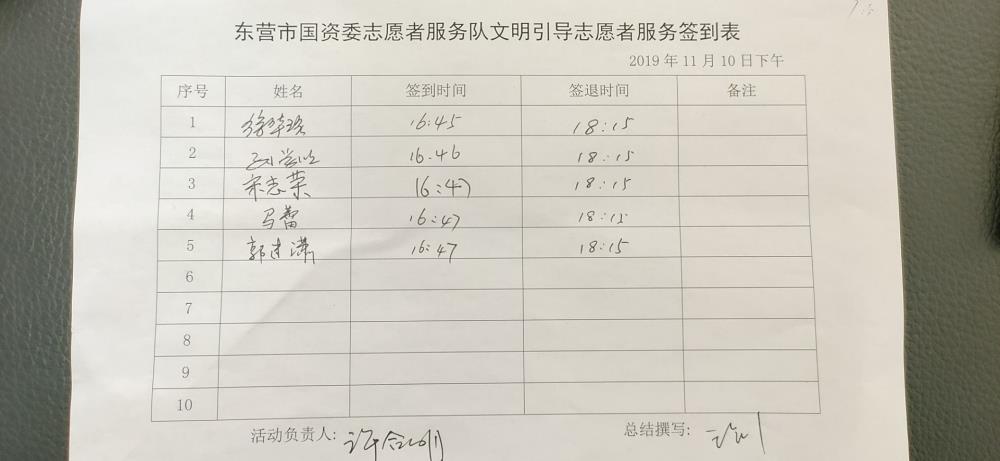 东营市国资委志愿者服务队文明引导志愿者服务签到表
2019 年 11 月 10 日下午
序号 姓名 签到时间 签退时间 备注
1 16:45 18:15
2 16.46 18:15
3 宋志荣 16:47 18:15
4 马蕾 16:47 18:15
5 郭建潇 16:47 18:15
6
7
8
9
10
活动负责人: 总结撰写: